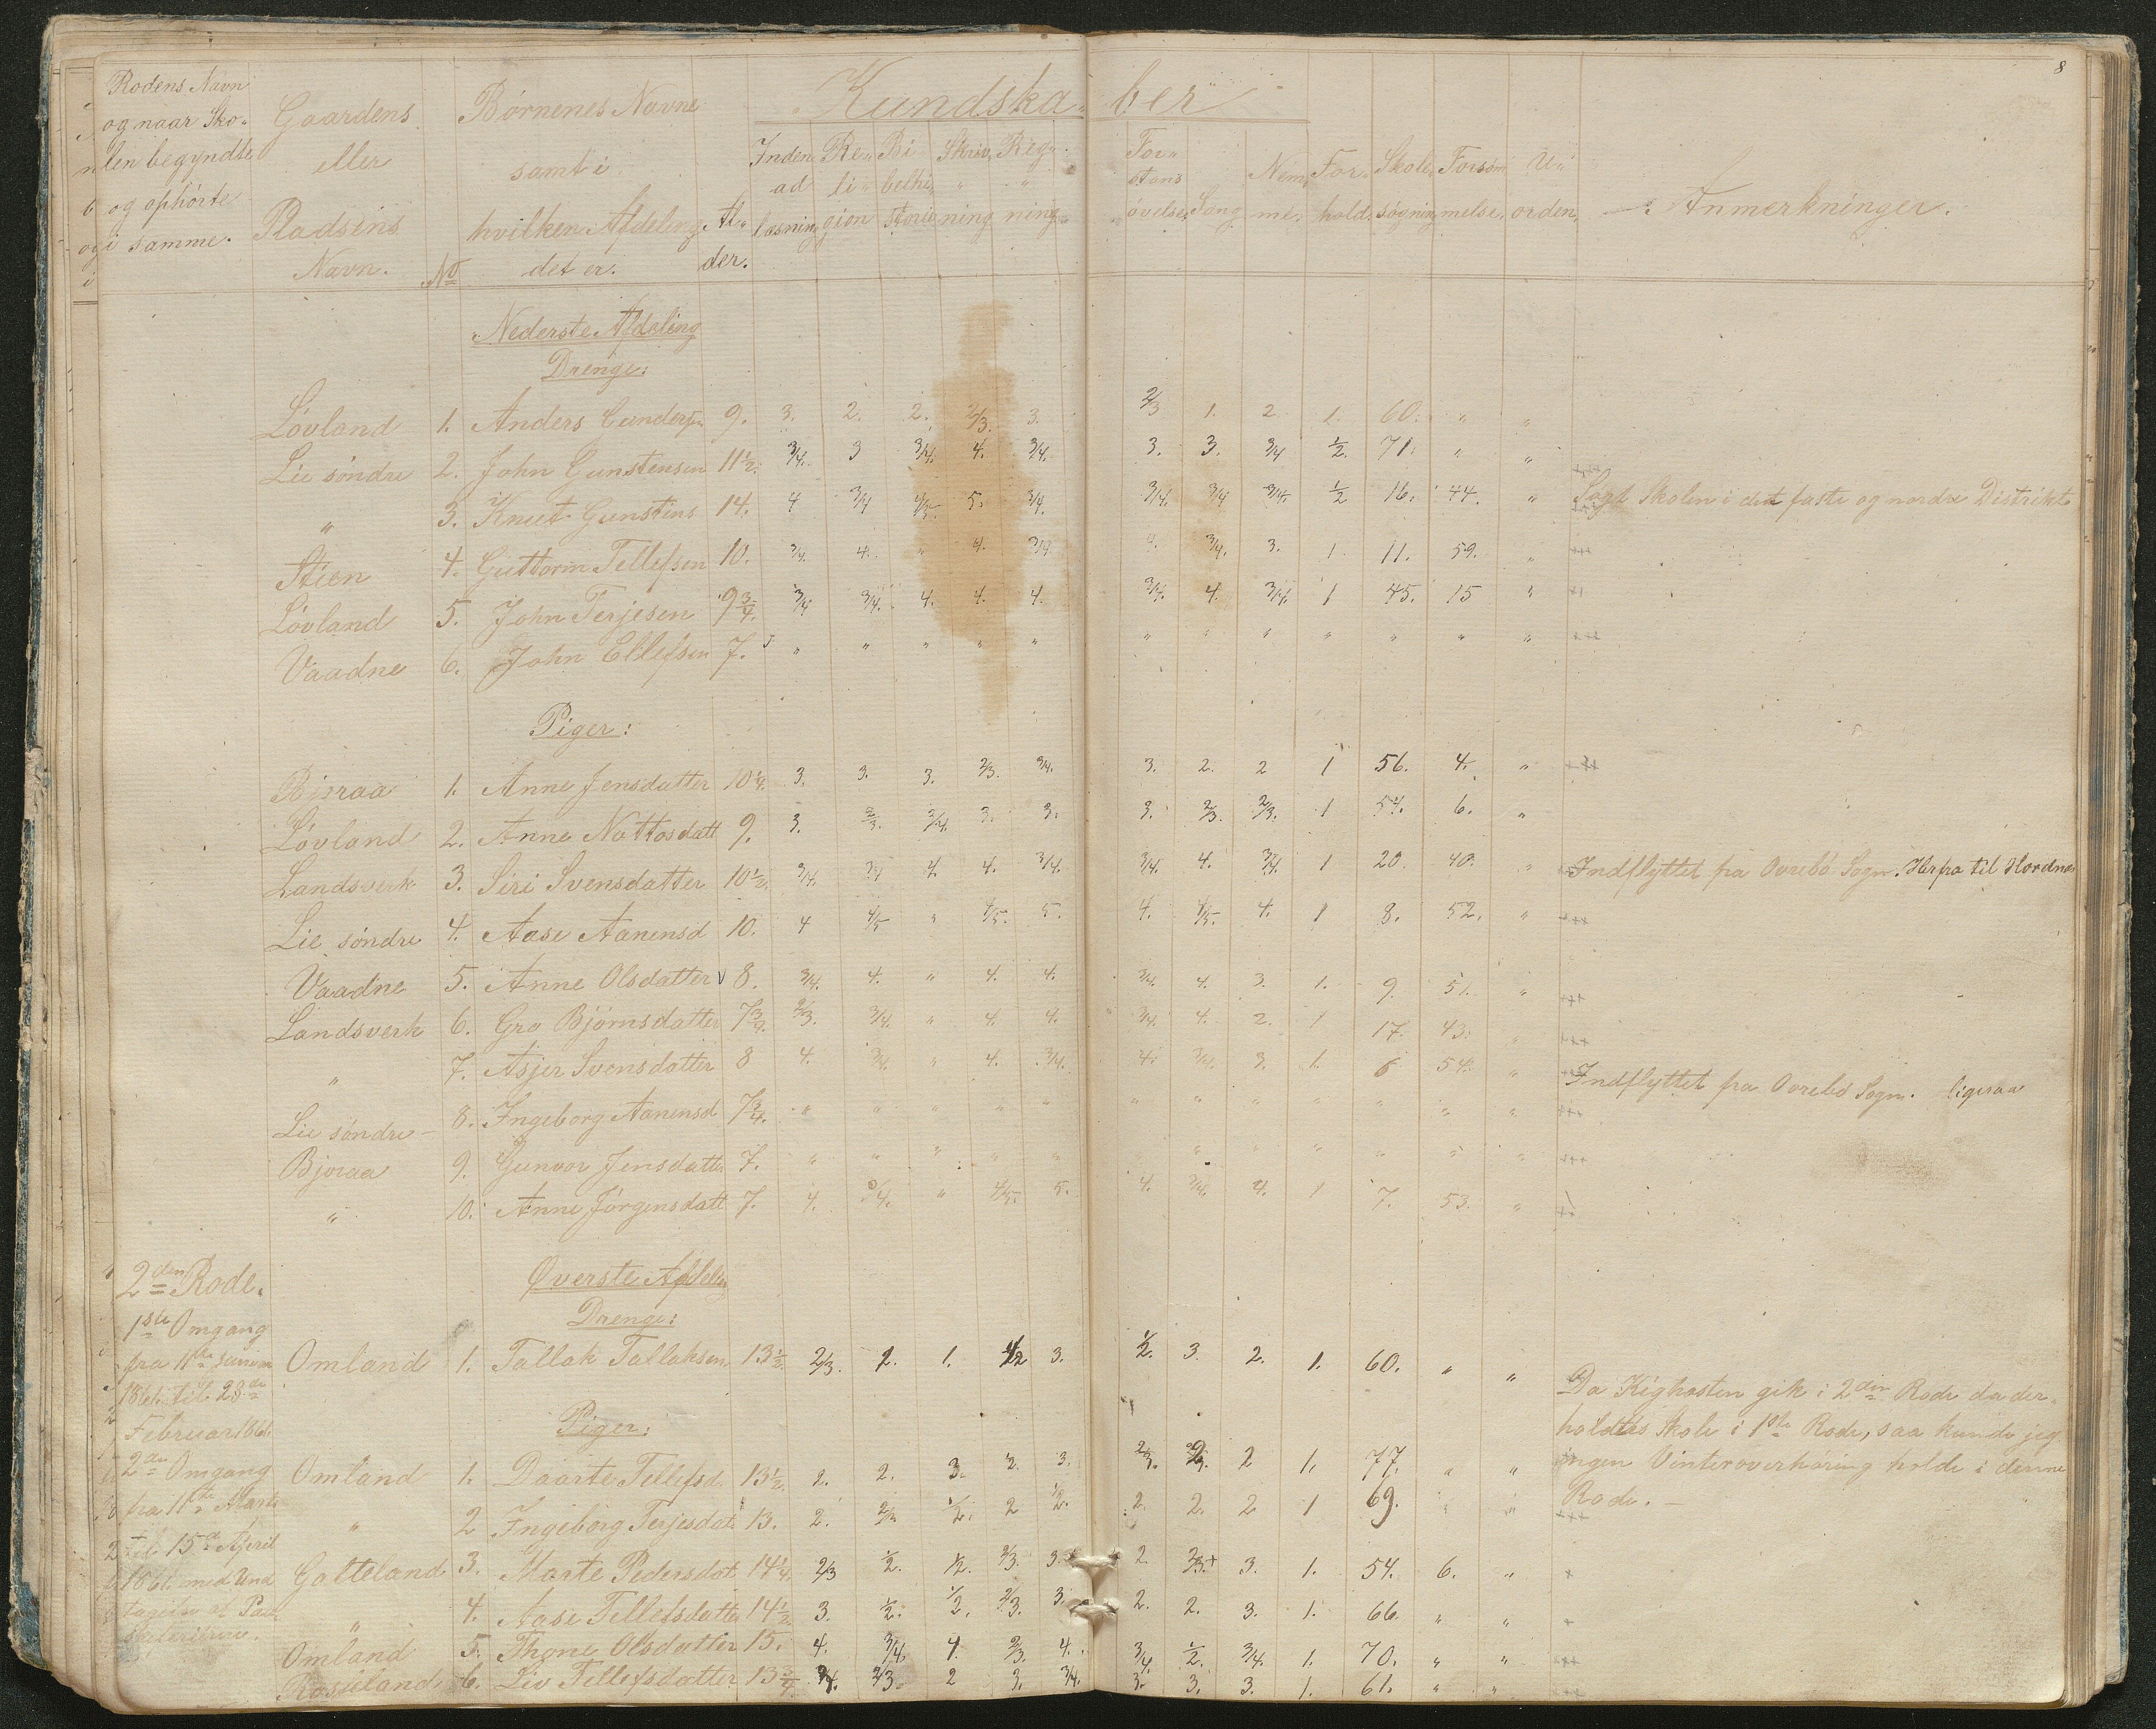 8
Rodens Navn og naar Skolen begyndte og ophörte i samme.
Gaardens eller Pladsens Navn.
No
Börnenes Navne samt i hvilken Afdeling det er.
Alder.
Kundskaber
Inden ad læsning
Religion
Bibelhistorie
Skrivning
Regning
Forstans övelse
Sang
Nemme
Forhold
Skolesögning
Forsömmelse
Uorden
Anmerkninger.
Nederste Afdeling
Drenge:
Lövland 1. Anders Gundersen 9. 3. 2. 2. 2/3. 3. 2/3 1. 2 1. 60. " "
Lie söndre 2. John Gunstensen 11 1/2. 3/4. 3 3/4. 4. 3/4. 3. 3. 3/4 1/2. 71. " "
" 3. Knut Gunstens 14. 4 3/4 4/5. 5. 3/4. 3/4. 3/4 3/4. 1/2 16. 44. " Sögt Skolen i det faste og nordre Distrikt
Stien 4. Guttorm Tellefsen 10. 3/4. 4. " 4. 3/4. 4. 3/4. 3. 1. 11. 59. "
Lövland 5. John Terjesen 9 3/4. 3/4 3/4. 4. 4. 4. 3/4. 4. 3/4. 1 45. 15 "
Vaadne 6. John Ellefsen 7. " " " " " " " " " " " "
Piger:
Bjoraa 1. Anne Jensdatter 10 1/4. 3. 3. 3. 2/3. 3/4. 3. 2. 2 1 56. 4. "
Lövland 2. Anne Nottosdatt 9. 3. 2/3. 3/4. 3. 3. 3. 2/3. 2/3. 1 54. 6. "
Landsverk 3. Siri Svensdatter 10 1/2. 3/4. 3/4 4. 4. 3/4. 3/4. 4. 3/4. 1 20. 40. " Indflyttet fra Övrebö Sogn. Herfra til Hordnes
Lie söndre 4. Aase Aanensd 10. 4 4/5 " 4/5. 5. 4. 4/5. 4. 1 8. 52. "
Vaadne 5. Anne Olsdatter 8. 3/4. 4. " 4. 4. 3/4. 4. 3. 1. 9. 51. "
Landsverk 6. Gro Björnsdatter 7 3/4. 2/3. 3/4. " 4. 4. 3/4. 4. 2. 1 17. 43. "
" 7. Asjer Svensdatter 8 4. 3/4. " 4. 3/4. 4. 3/4. 3. 1. 6 54. " Indflyttet fra Övrebö Sogn. ligesaa
Lie söndre 8. Ingeborg Aanensd 7 3/4. " " " " " " " " " " " "
Bjoraa 9. Gunvor Jensdatter 7. " " " " " " " " " " " "
" 10. Anne Jörgensdatt 7. 4. 3/4. " 4/5. 5. 4. 3/4. 4. 1 7. 53. "
2den Rode.
Øverste Afdeling
Drenge:
1ste Omgang
fra 11te Januar
1861 til 23de
Februar 1861.
2den Omgang
fra 11te Marts
til 15de April
1861 med Und
tagelse af Paa
skeferierne.
Omland 1. Tallak Tallaksen 13 1/2. 2/3. 2. 1. 1/2 3. 1/2. 3. 2. 1. 60. " "
Da Kighosten gik i 2den Rode da der
holdtes Skole i 1ste Rode, saa kunde jeg
ingen Vinteroverhöring holde i denne
Rode. —
Piger:
Omland 1. Daarte Tellefsd. 13 1/2. 2. 2. 3. 2. 3. 2/3. 2/3. 2 1. 77. " "
" 2 Ingeborg Terjesdat. 13. 2. 2/3. 1/2. 2 1/2. 2. 2. 2 1 69. " "
Galteland 3. Marte Pedersdat. 14 1/4. 2/3 1/2. 1/2. 2/3. 3. 2. 2/3. 3. 1. 54. 6. "
" 4. Aase Tellefsdatter 14 1/2 3. 1/2. 1/2. 2/3. 3. 2. 2. 3. 1. 66. " "
Omland 5. Thone Olsdatter 15. 4. 3/4. 4. 2/3. 4. 3/4. 1/2. 3/4. 1. 70. " "
Rosseland 6. Liv Tellefsdatter 13 3/4 3/4. 2/3. 2 3. 3/4. 3. 3. 3. 1. 61. " "